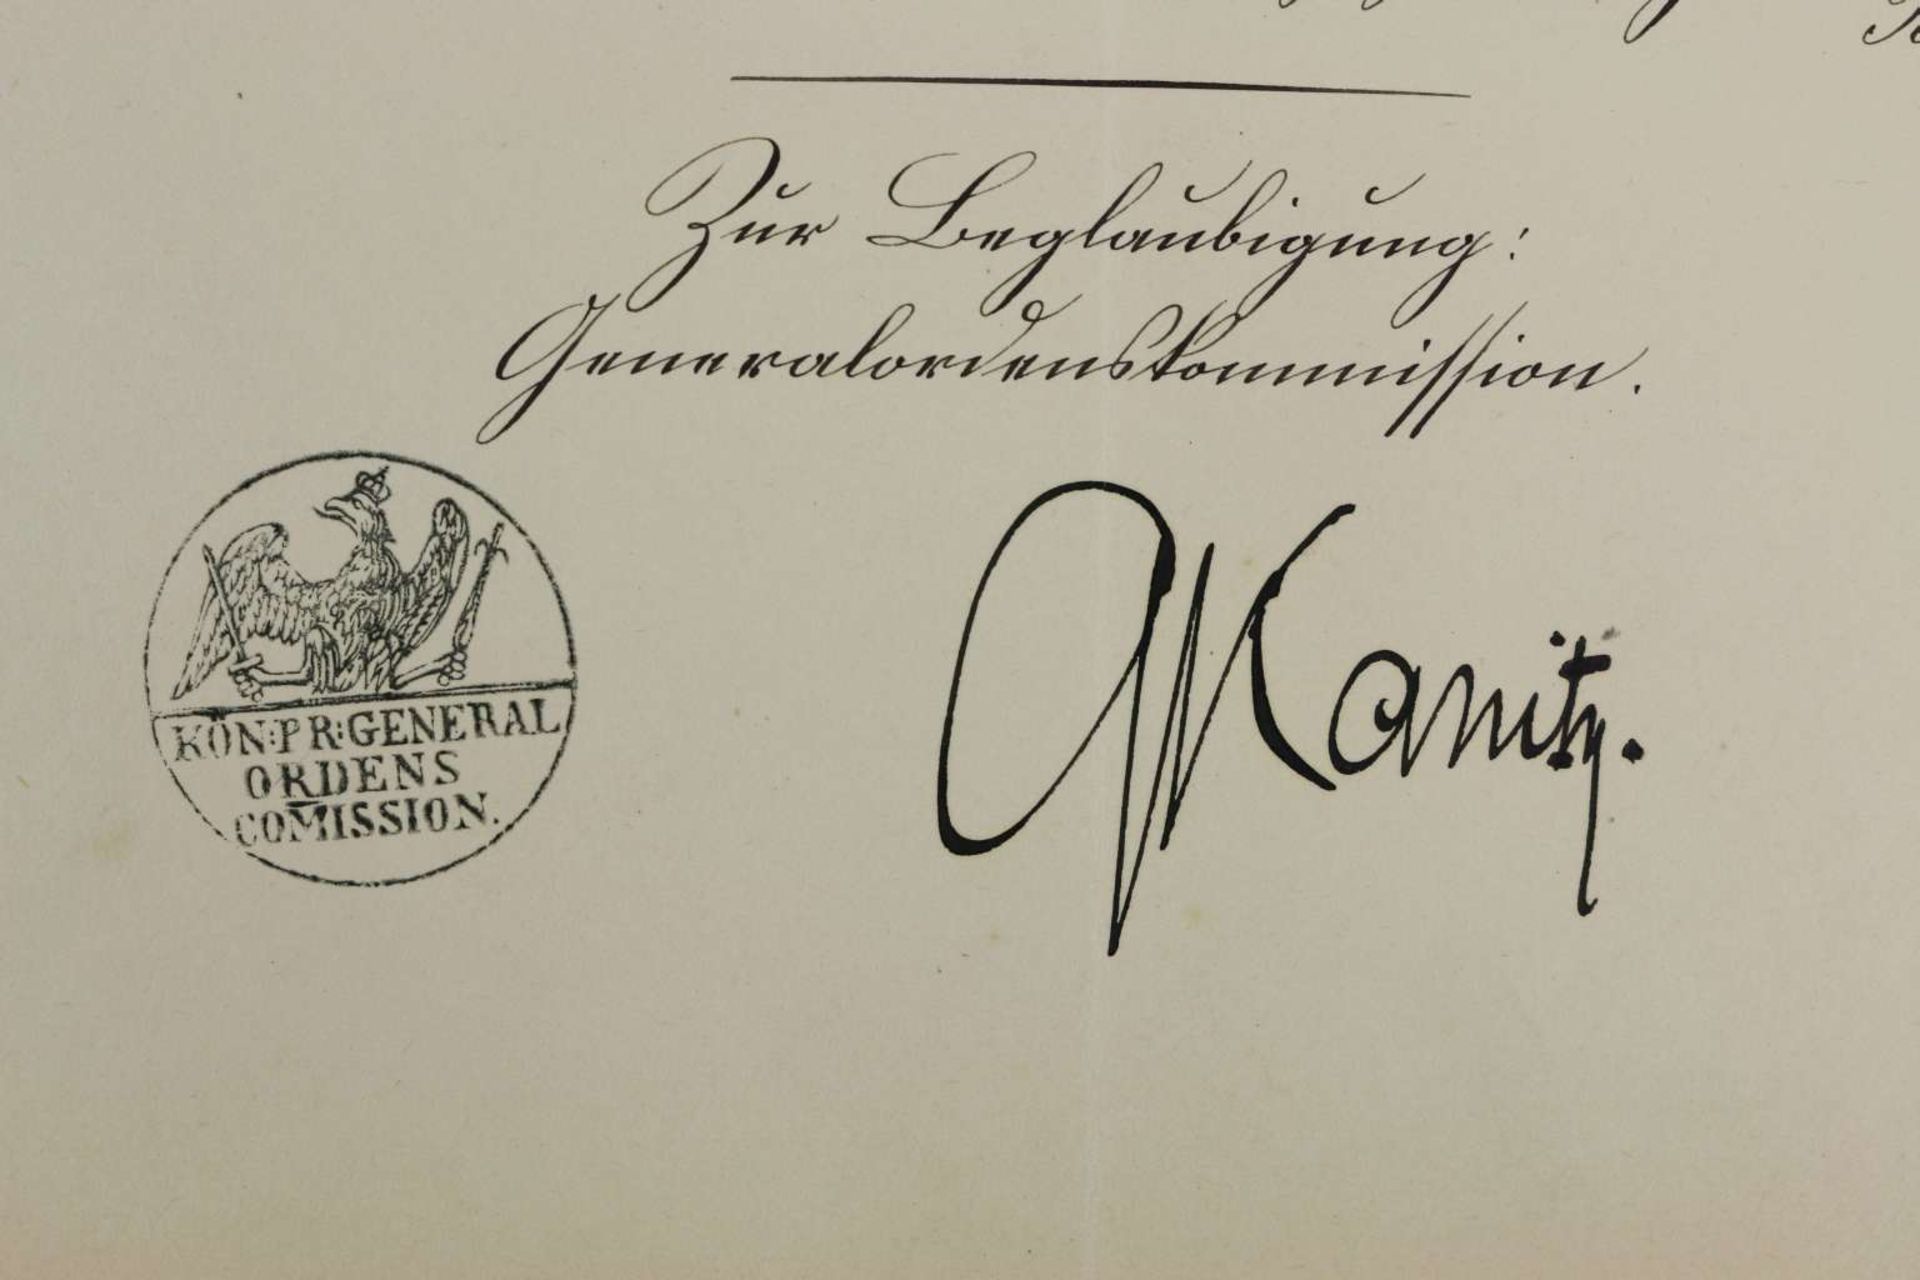 Zur Beglaubigung:
Generalordenskommission.
KÖN:PR:GENERAL
ORDENS
COM̅ISSION.
Kanitz.